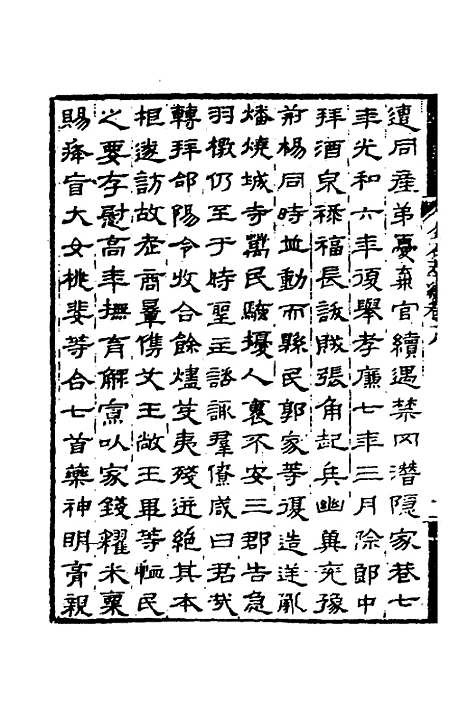 遭同產弟憂棄官續遇禁冈潛隱家巷七
年光和六年復舉孝廉七年三月除郎中
拜酒泉祿福長訞賊張角起兵幽冀兗豫
荊楊同時並動而縣民郭家等復造逆亂
燔燒城寺萬民騷擾人褱不安三郡告急
羽檄仍至于時聖主諮諏羣僚咸曰君哉
轉拜郃陽令收合餘燼芟夷殘迸絕其本
根遂訪故老商量儁艾王敞王畢等恤民
之要存慰高年撫育鰥寡以家錢糴米粟
賜癃盲大女桃斐等合七首藥神明膏親